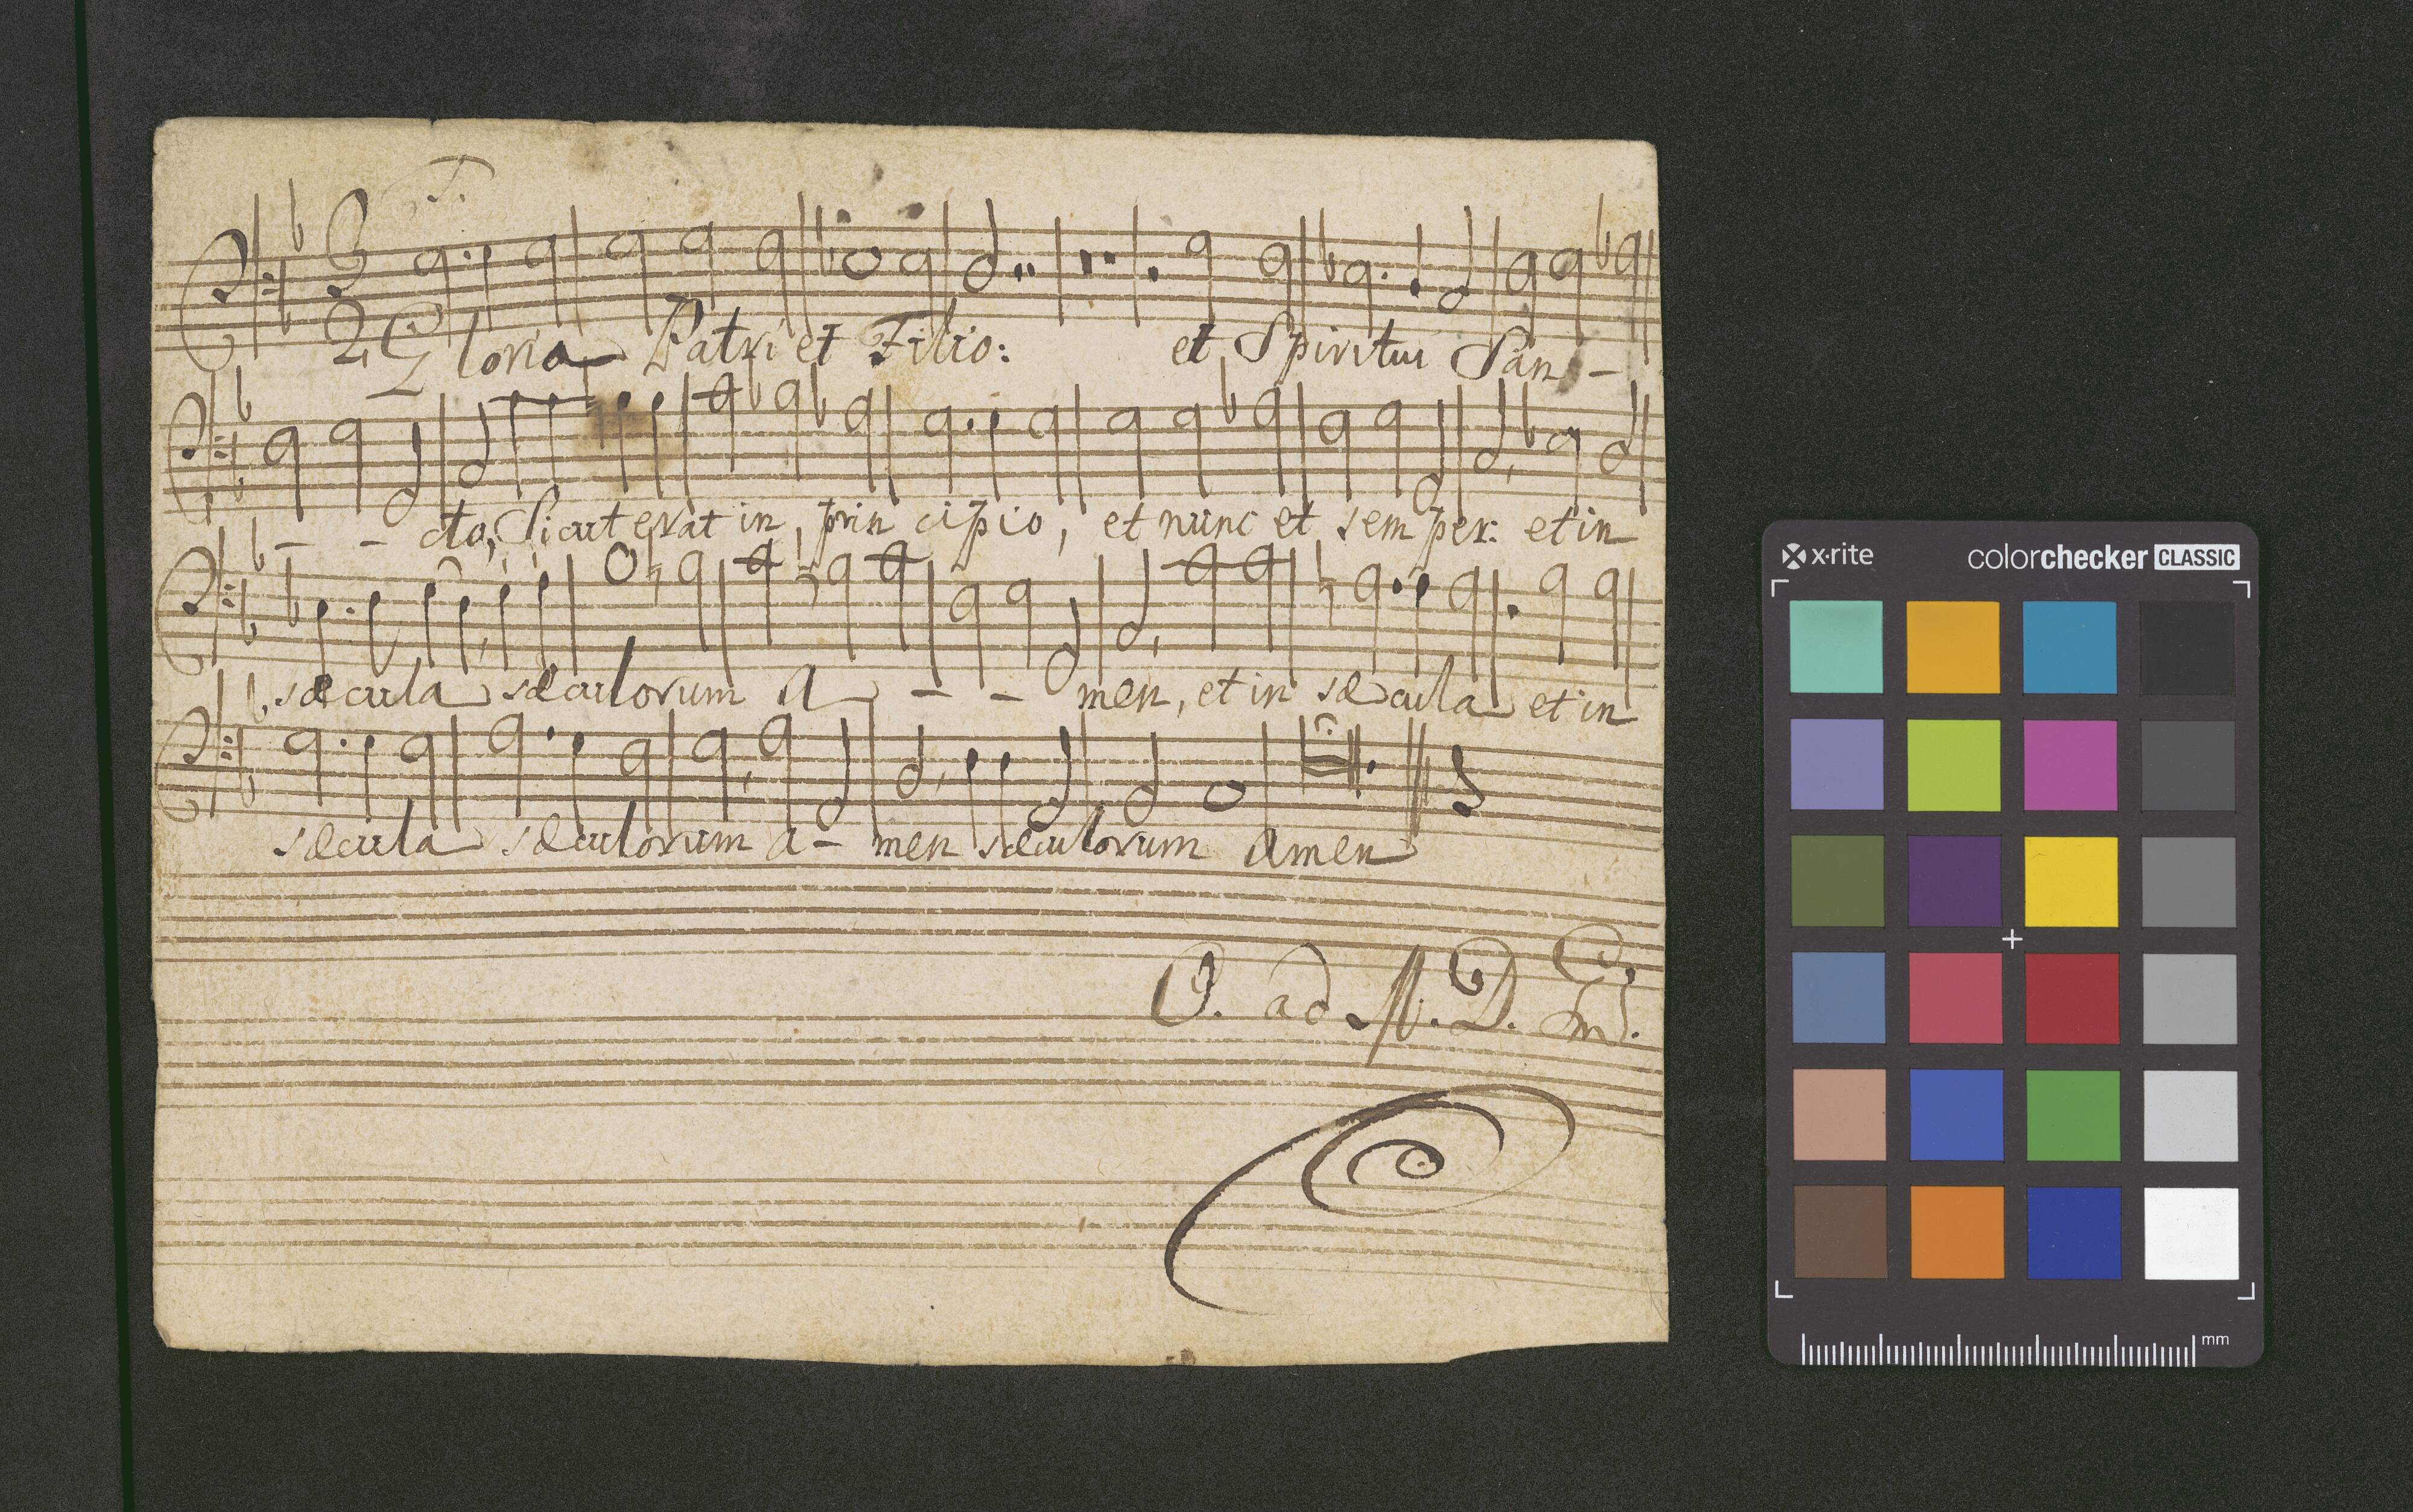 T.
3
2 Gloria Patri et Filio: et Spiritui San -
- - cto, Sicut erat in prin cipio, et nunc et sem per: et in
sæcula sæculorum A - - men, et in sæcula et in
sæcula sæculorum a - men sæculorum Amen
O. ad M. D.
x·rite colorchecker CLASSIC
mm